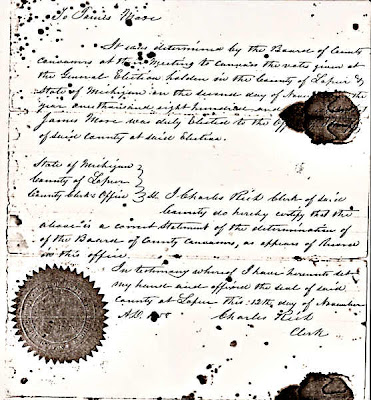 To James More
It was determined by the Board of County
canvasers at their Meeting to Canvass the vote given at
the General Election holden in the County of Lapeer &
State of Michigan on the second day of the
year one thousand eight hundred and
James More was duly Elected to the
of said county at said Election.
State of Michigan
County of Lapeer
County Clerk's Office } ss. I Charles Rich Clerk of said
County do hereby certify that the
above is a correct Statement of the determination of
of the Board of County Canvasers, as appears of Record
in this office
In testimony whereof I have hereunto set
my hand and affixed the seal of said
County at Lapeer this 12th day of November
A.D.
Charles Rich
Clerk